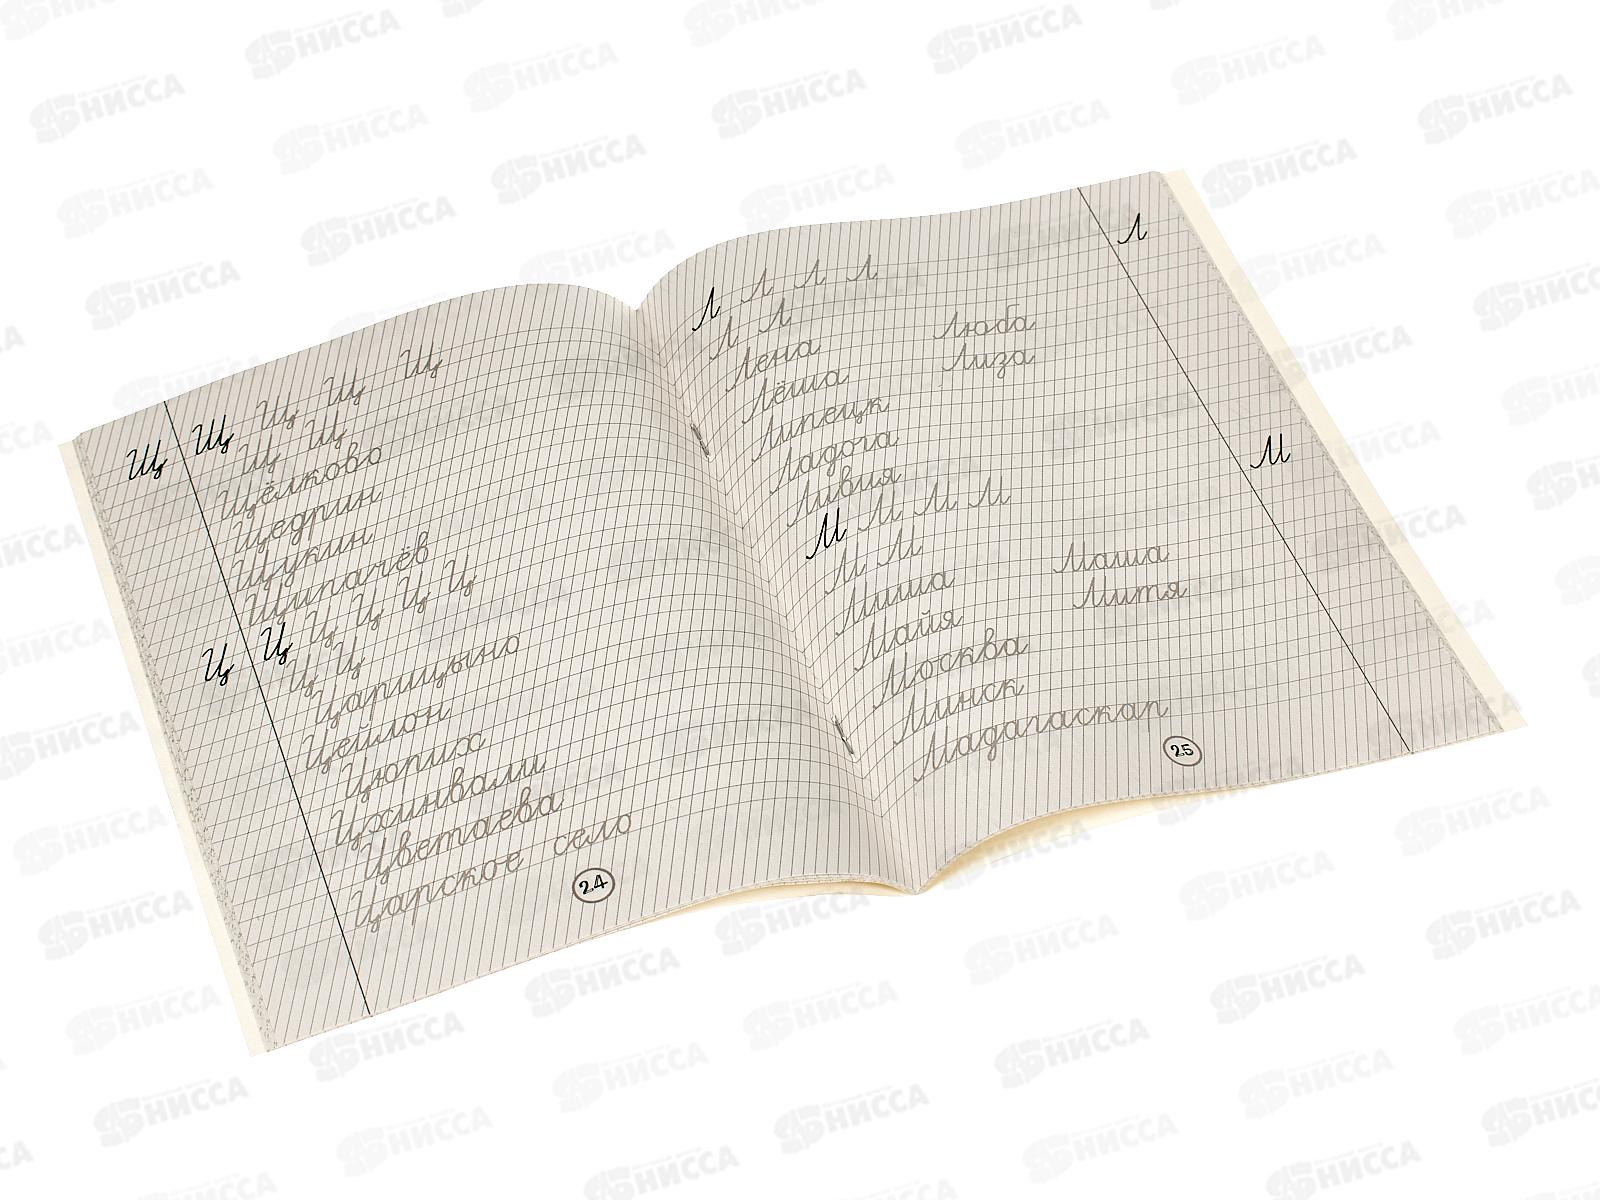 Щ Щ Щ Щ Щ
Щ Щ
Щёлково
Щедрин
Щукин
Щипачёв
Ц Ц Ц Ц Ц Ц
Ц Ц
Царицыно
Цейлон
Цюрих
Цхинвали
Цветаева
Царское село
24
Л Л Л Л Л
Л Л
Лена Люба
Лёша Лиза
Липецк
Ладога
Ливия
М М М М М
М М
Миша Маша
Майя Митя
Москва
Минск
Мадагаскар
25
НИССА